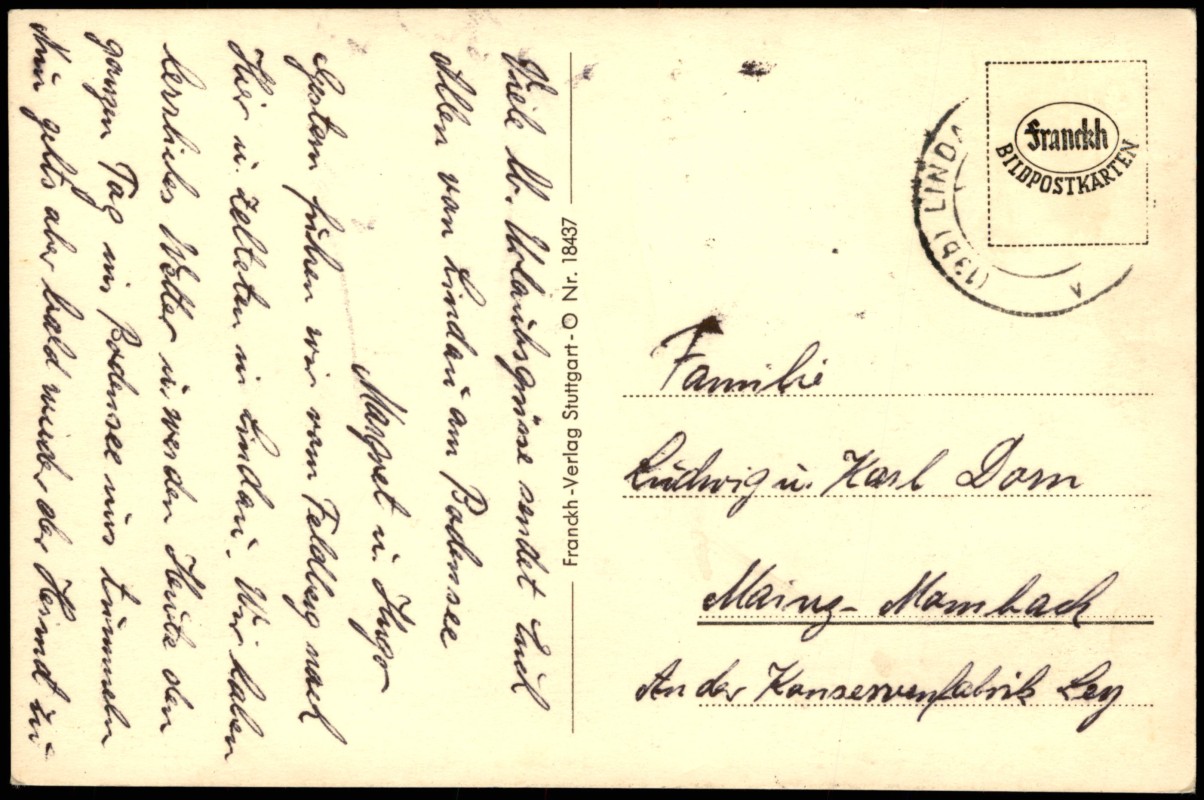 Viele lb. Urlaubsgrüsse sendet Euch
Allen von Lindau am Bodensee
Margret u. Hugo
Gestern fuhren wir vom Feldberg nach
Hier u. zelteten in Lindau. Wir haben
herrliches Wetter u. werden Heute den
ganzen Tag im Bodensee uns tummeln
Nun gehts aber bald wieder der Heimat zu
Franckh-Verlag Stuttgart-O Nr. 18437
Franckh
BILDPOSTKARTEN
(13b) LINDA
Familie
Ludwig u. Karl Dorn
Mainz-Mombach
An der Konservenfabrik Ley